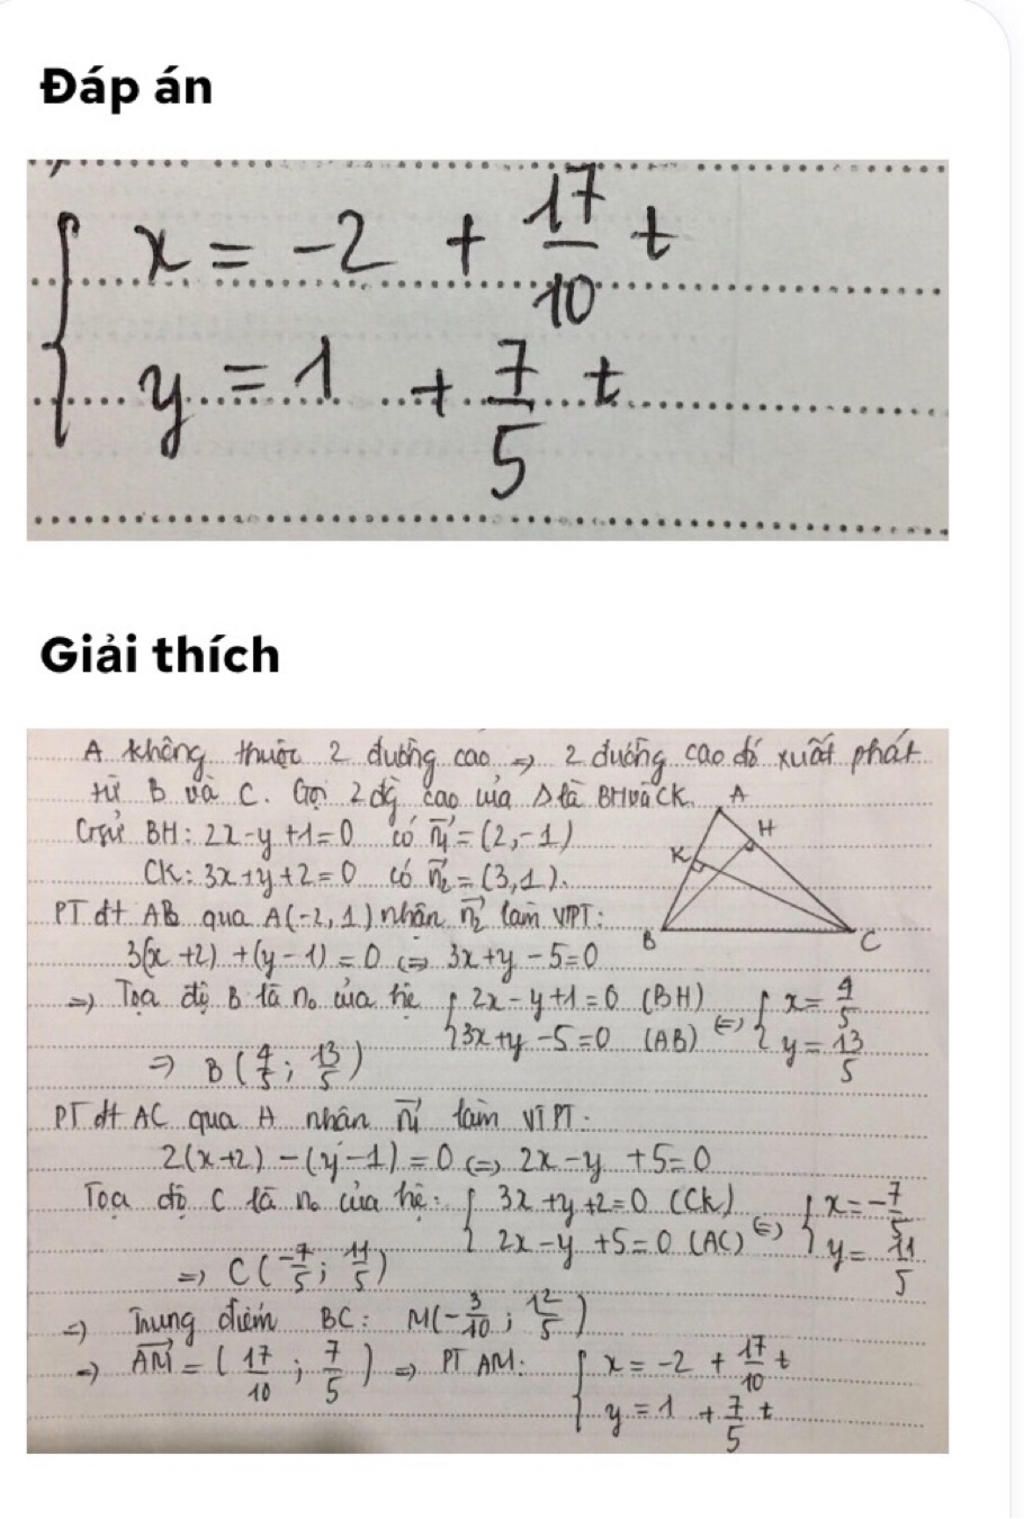 Đáp án
x = -2 + 17/10 t
y = 1 + 7/5 t
Giải thích
A không thuộc 2 đường cao => 2 đường cao đó xuất phát
từ B và C. Gọi 2 đg cao của Δ là BH và CK.
A
H
K
B
C
Gsử BH: 2x - y + 1 = 0 có n₁ = (2, -1)
CK: 3x + y + 2 = 0 có n₂ = (3, 1).
PT đt AB qua A(-2, 1) nhân n₂ làm VTPT:
3(x + 2) + (y - 1) = 0 <=> 3x + y - 5 = 0
=> Toạ độ B là n₀ của hệ { 2x - y + 1 = 0 (BH) { x = 4/5
{ 3x + y - 5 = 0 (AB) <=> { y = 13/5
=> B(4/5; 13/5)
PT đt AC qua A nhân n₁ làm VTPT.
2(x + 2) - (y - 1) = 0 <=> 2x - y + 5 = 0
Toạ độ C là n₀ của hệ: { 3x + y + 2 = 0 (CK) { x = -7/5
{ 2x - y + 5 = 0 (AC) <=> { y = 11/5
=> C(-7/5; 11/5)
=> Trung điểm BC: M(-3/10; 12/5)
=> AM = (17/10; 7/5) => PT AM: { x = -2 + 17/10 t
{ y = 1 + 7/5 t